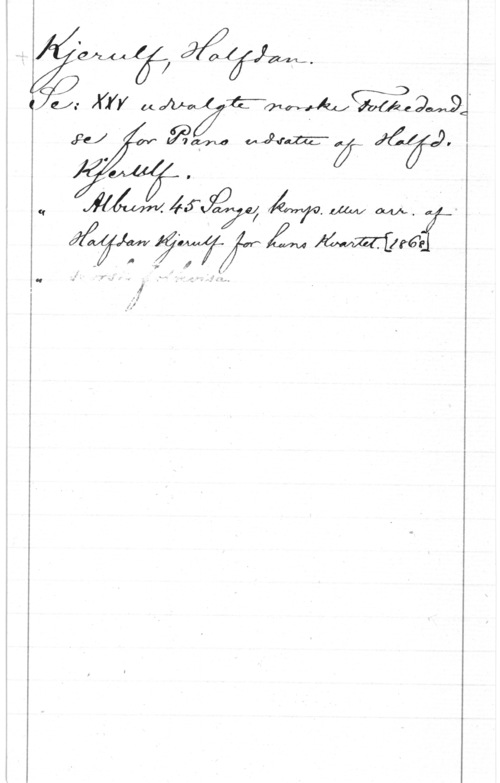 Kjerulf, Halfdan.
Se: XXV udvalgte norske Folkedand-
se for Piano udsatte af Halfd.
Kjerulf.
" Album. 45 Sange, komp. eller arr. af
Halfdan Kjerulf for hans Kvartet. [1868]
"